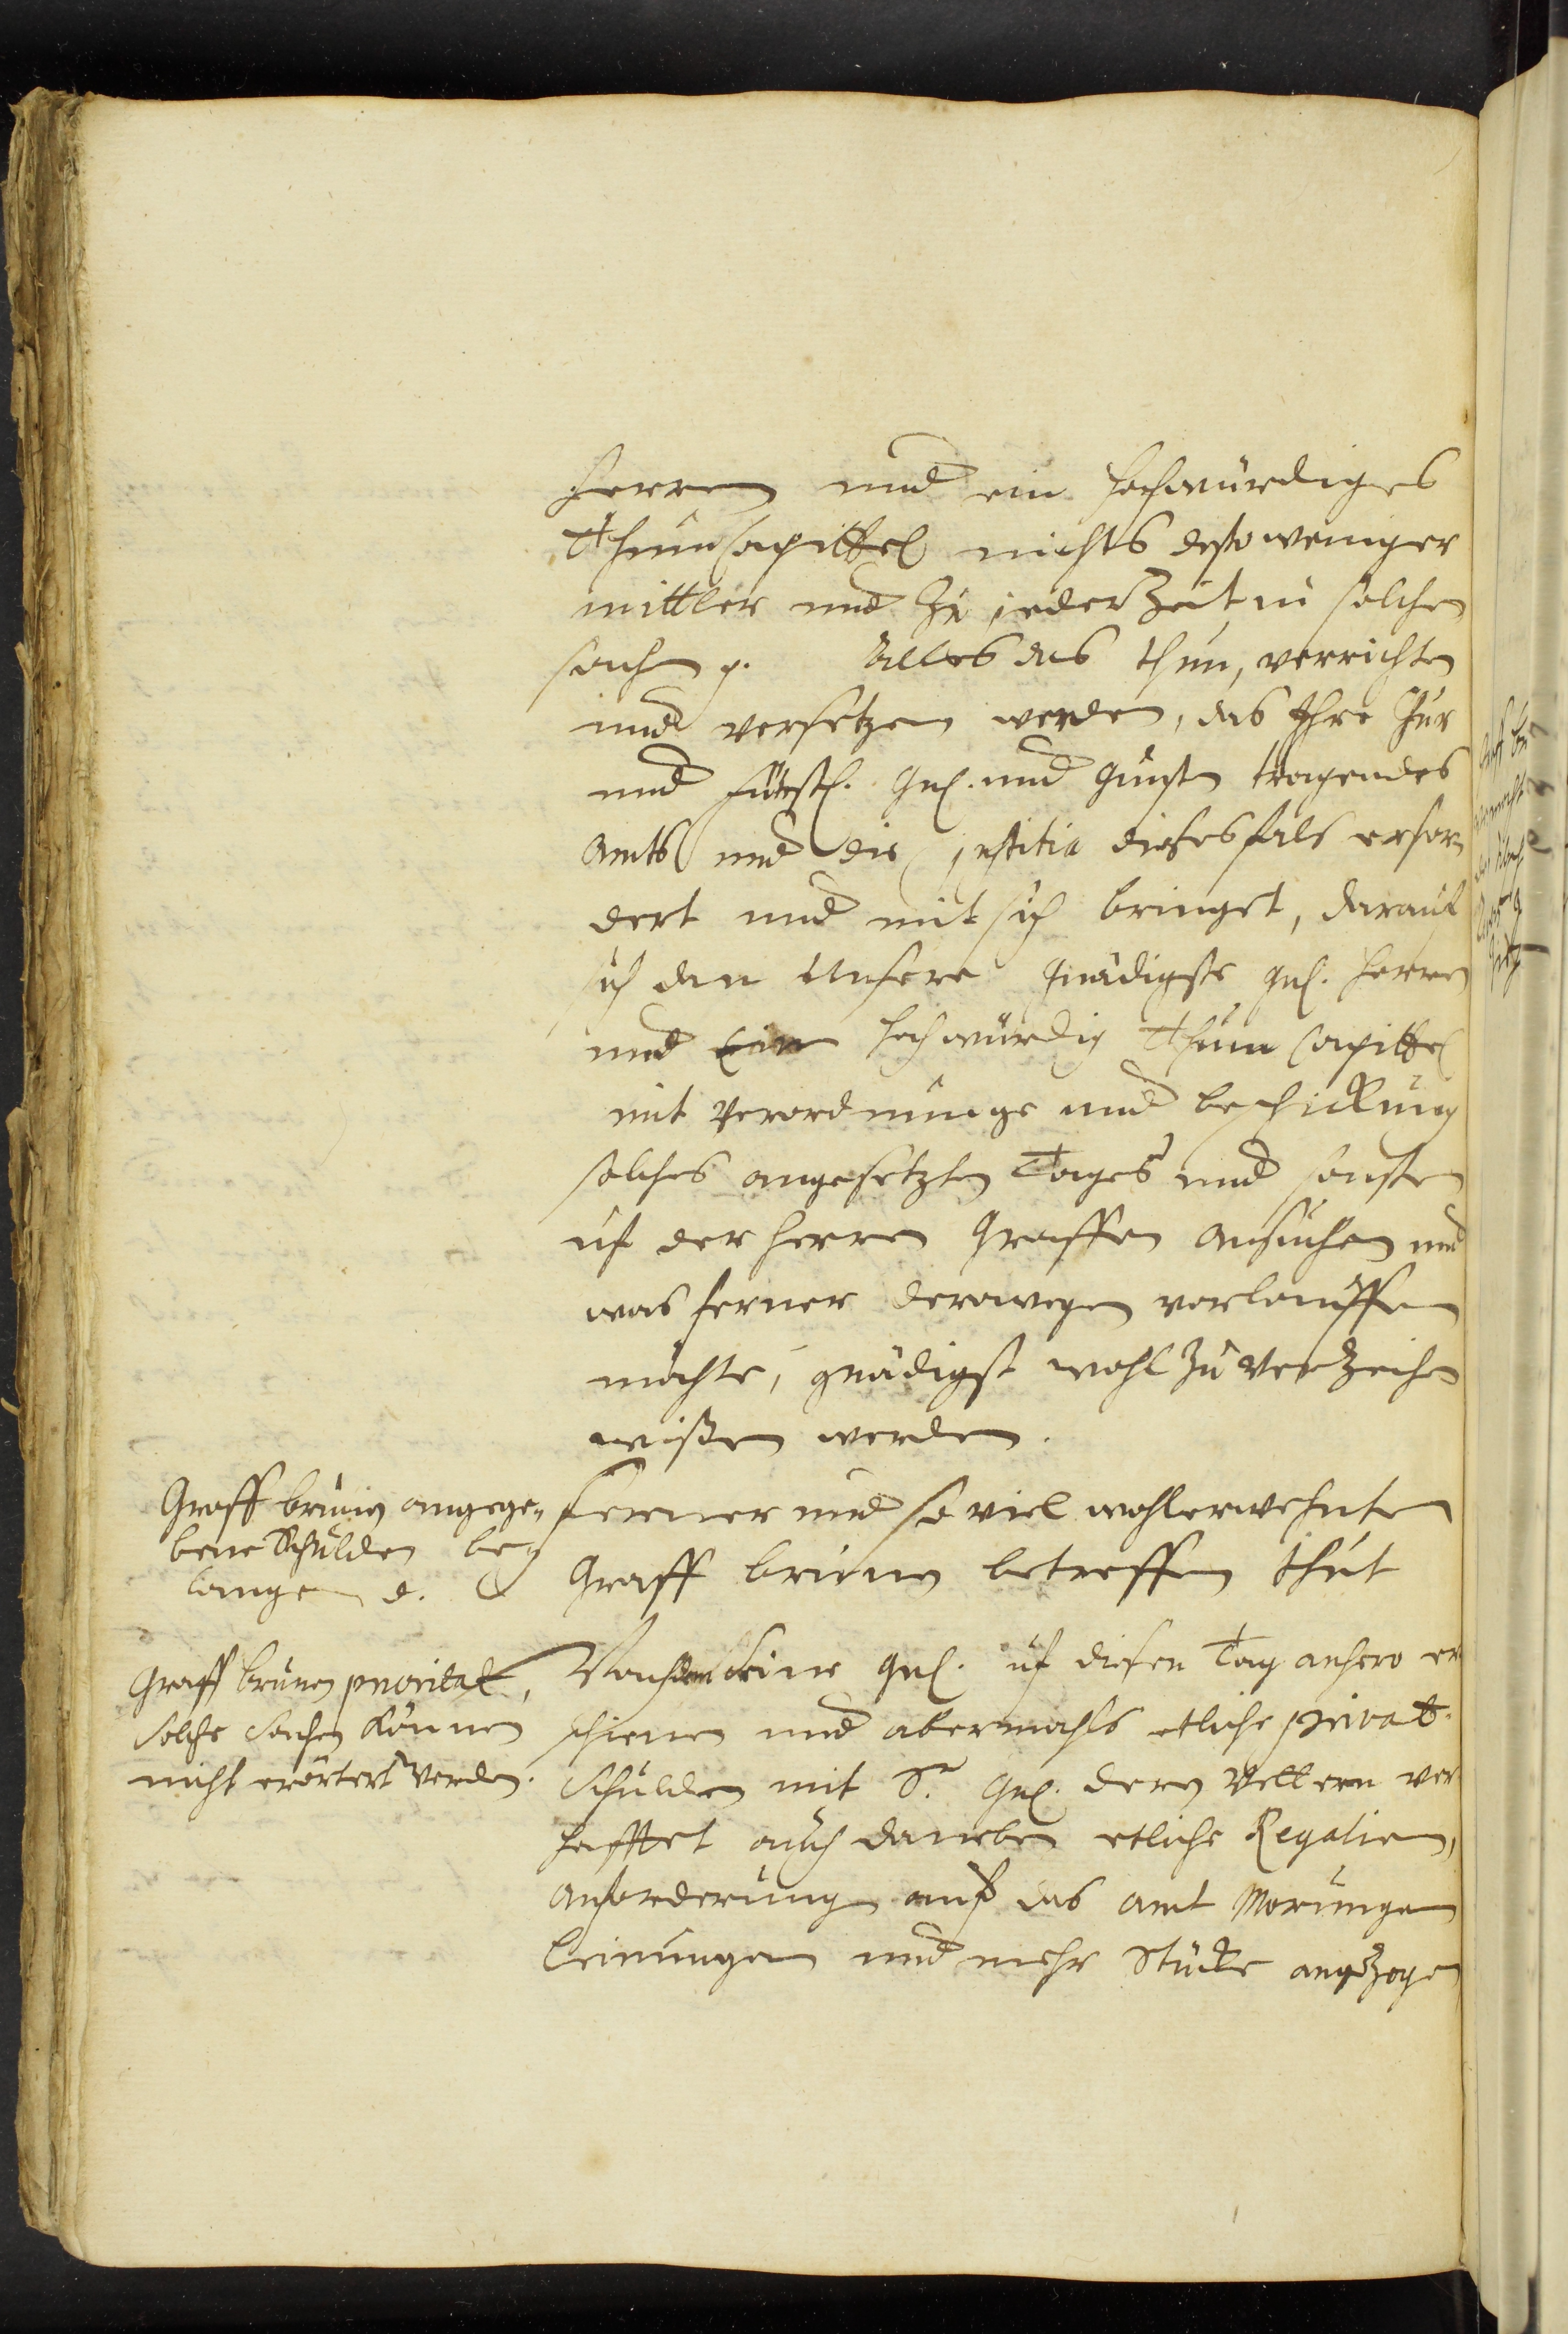 Herren und ein hochwürdiges
Thumcapittel nichts destoweniger
mittler und Zu jederZeit in solchen
sachen p. Alles das thun, verrichten
und versetzen werden, das Ihre Chur
und Fürstl. Gnl. und Gunsten tragendes
Ambt und die justitia diesesfals erfor-
dert und mit sich bringet, darauf
sich dan Unsere Gnädigste gnl. Herren
und Ein hochwürdig Thum Capittel
mit Verordnunge und beschickung
solches angesetzten Tages und sonsten
uf der Herren Graffen Ansuchen und
was ferner derowegen vorlauffen
möchte, gnädigst wohl zu verZeihen
wißen werden.
Graff brunen angege-
bene Schulden be-
langen
Ferner und so viel wohlerwehnten
Graff brunen betreffen thut
Graff brunen prioritat,
solche sachen können
nicht erörtert werden.
Nachdem Seine Gnl. uf diesen Tag anhero er
schienen und abermahls etliche privat-
schulden mit Sr. Gnl. deren Vettern ver
hafftet auch daneben etliche Regalien,
Anforderung auf das Amt Morungen
Leinungen und mehr Stücke angeZogen